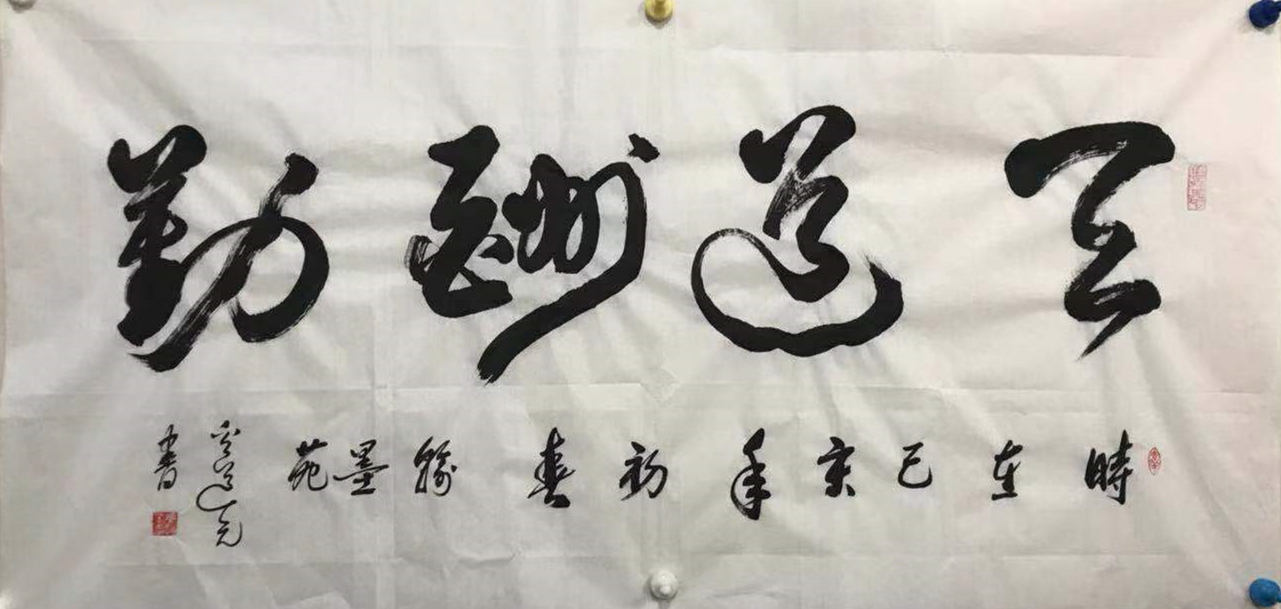 天道酬勤
時在己亥年初春翰墨苑
書